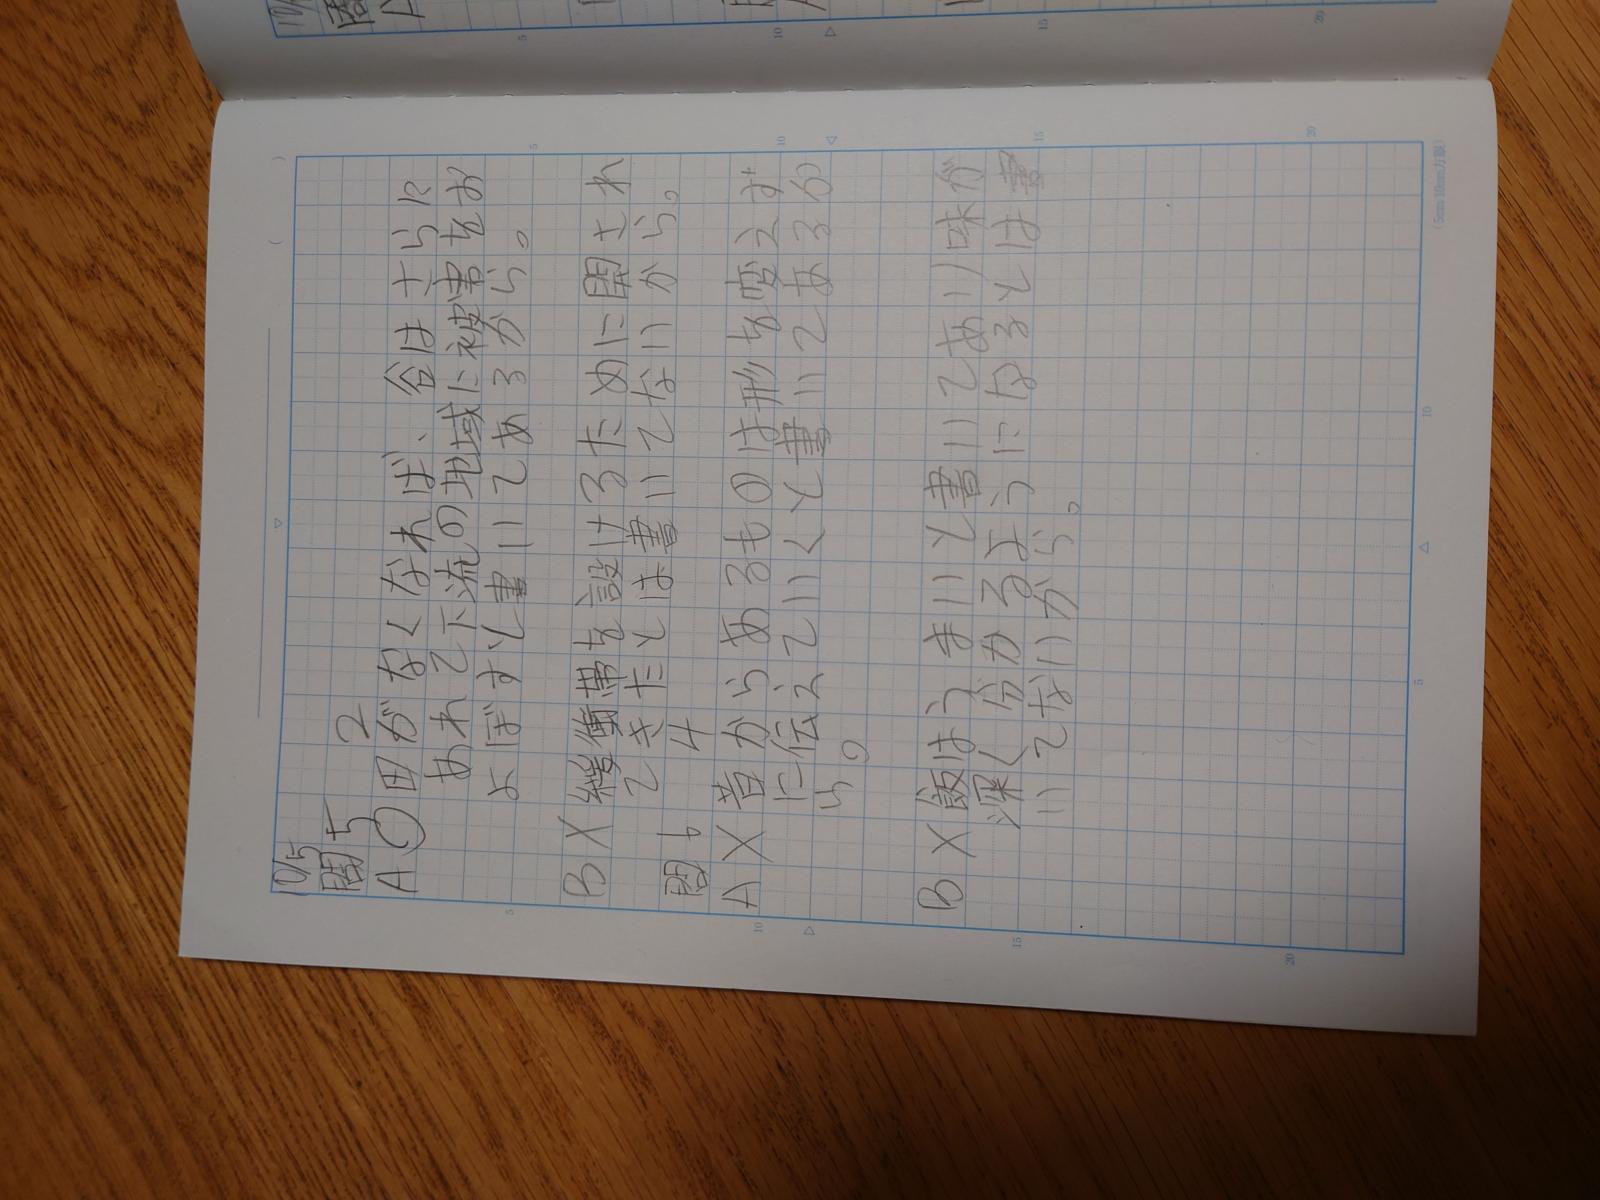 10/5
問5 2
A ○ 田がなくなれば、谷はさらに
あれて下流の地域に被害をお
よぼすと書いてあるから。
B X 緩衝帯を設けるために開され
てきたとは書いてないから。
問 4
A X 昔からあるものは形を変えず
に伝えていくと書いてあるか
ら。
B X 飯はうまいと書いてあり味が
深く分かるようになるとは書
いてないから。
5
10
15
20
5
10
15
20
5
10
(5mm 10mm方眼)